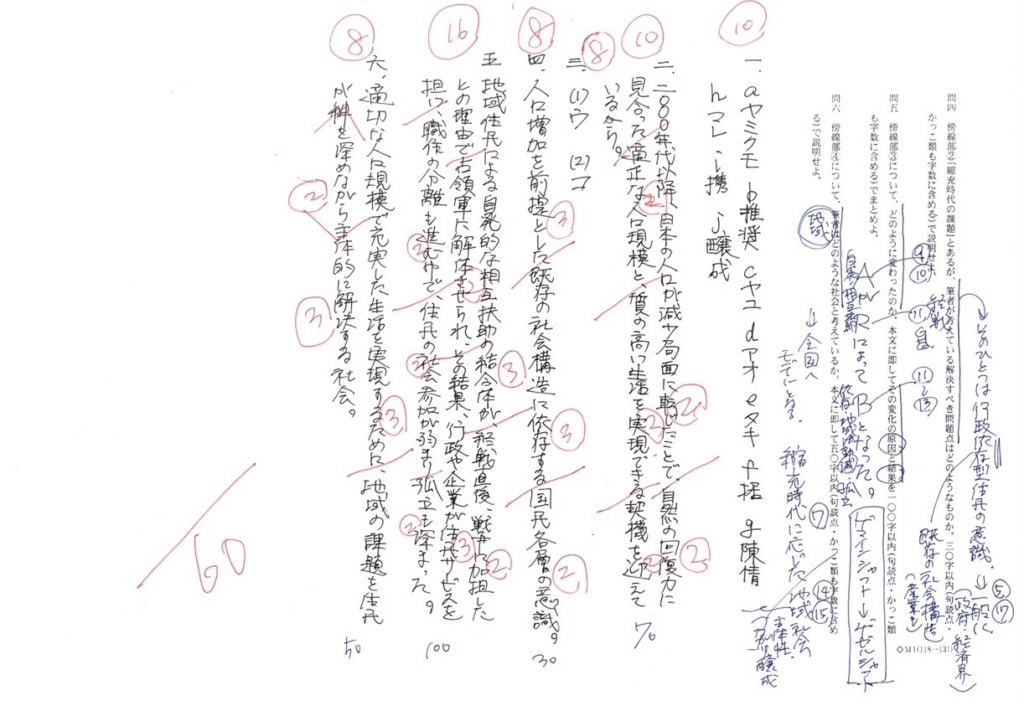 問四 傍線部②「縮充時代の課題」とあるが、筆者が考えている解決すべき問題点はどのようなものか。三〇字以内(句読点・
かっこ類も字数に含める)で説明せよ。
問五 傍線部③について、どのように変わったのか。本文に即してその変化の原因と結果を一〇〇字以内(句読点・かっこ類
も字数に含める)でまとめよ。
問六 傍線部④について、筆者はどのような社会と考えているか。本文に即して五〇字以内(句読点・かっこ類も字数に含め
る)で説明せよ。
◇M1(118―131)
→そのひとつは行政依存型住民の意識。→一般に
⑤
⑰
(政府 経済界)
既存の社会構造
(産業も)
⑨
⑩
⑪
⑪
↓
⑬
AがRによってBとなった。
自発的相互扶助
ゲマインシャフト→ゲゼルシャフト
地域
→全国へ
モデルとなる。
縮充時代に応じた地域社会
⑦
⑭
⑮
主体性
つながり醸成
⑩
一、aヤミクモ b推奨 cヤユ dアオ eタキ f括 g陳情
hマレ i携 j醸成
⑩
二、二〇〇〇年代以降、日本の人口が減少局面に転じたことで、自然の回復力に
見合った適正な人口規模と、質の高い生活を実現できる契機を迎えて
いるから。
70
⑧
三、(1)ウ (2)コ
⑧
四、人口増加を前提とした既存の社会構造に依存する国民各層の意識。
30
⑯
五、地域住民による自発的な相互扶助の結合体が、終戦直後、戦争に加担した
との理由で占領軍に解体させられ、その結果、行政や企業が公共サービスを
担い、職住の分離も進む中で、住民の社会参加が弱まり孤立も深まった。
100
⑧
六、適切な人口規模で充実した生活を実現するために、地域の課題を住民
が絆を深めながら主体的に解決する社会。
50
②
③
③
60